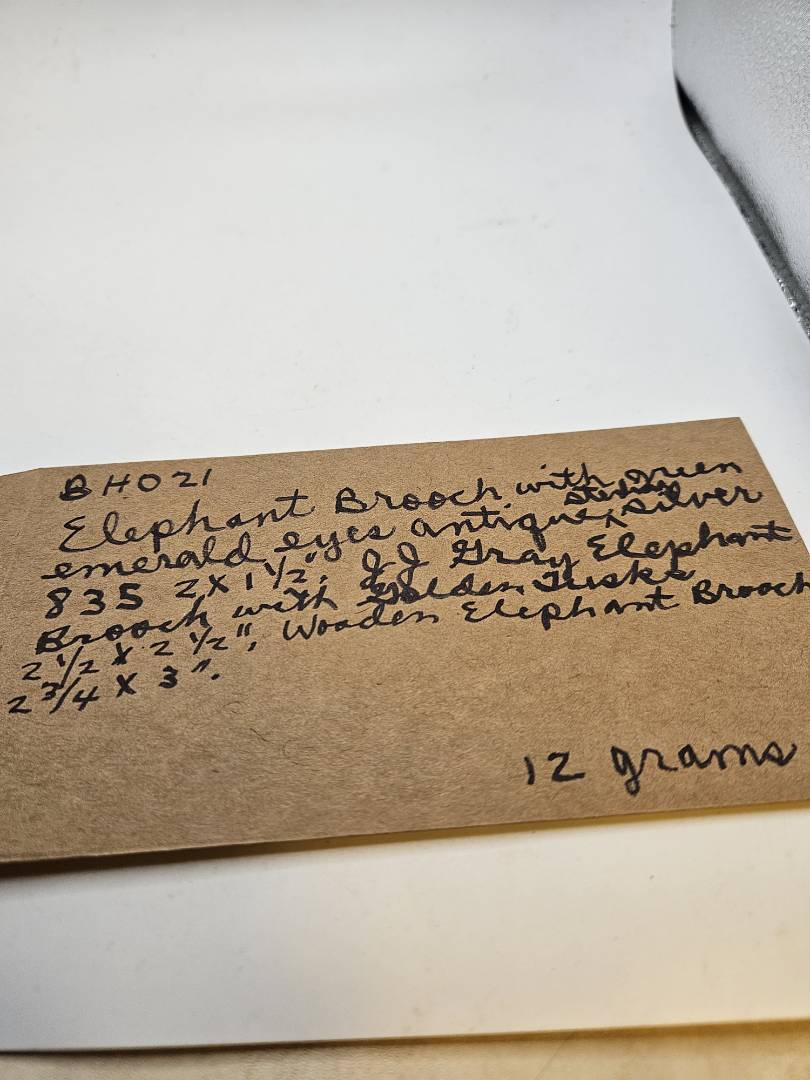 BH021
Elephant Brooch with green
emerald eyes antique ^ sterling silver
835 2 x 1 1/2", JJ Gray Elephant
Brooch with Golden Tusks
2 1/2 x 2 1/2", Wooden Elephant Brooch
2 3/4 x 3".
12 grams